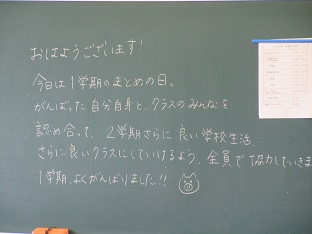 おはようございます!
今日は1学期のまとめの日。
がんばった自分自身と、クラスのみんなを
認め合って、2学期さらに良い学校生活、
さらに良いクラスにしていけるよう、全員で協力していきま
1学期、よくがんばりました!!